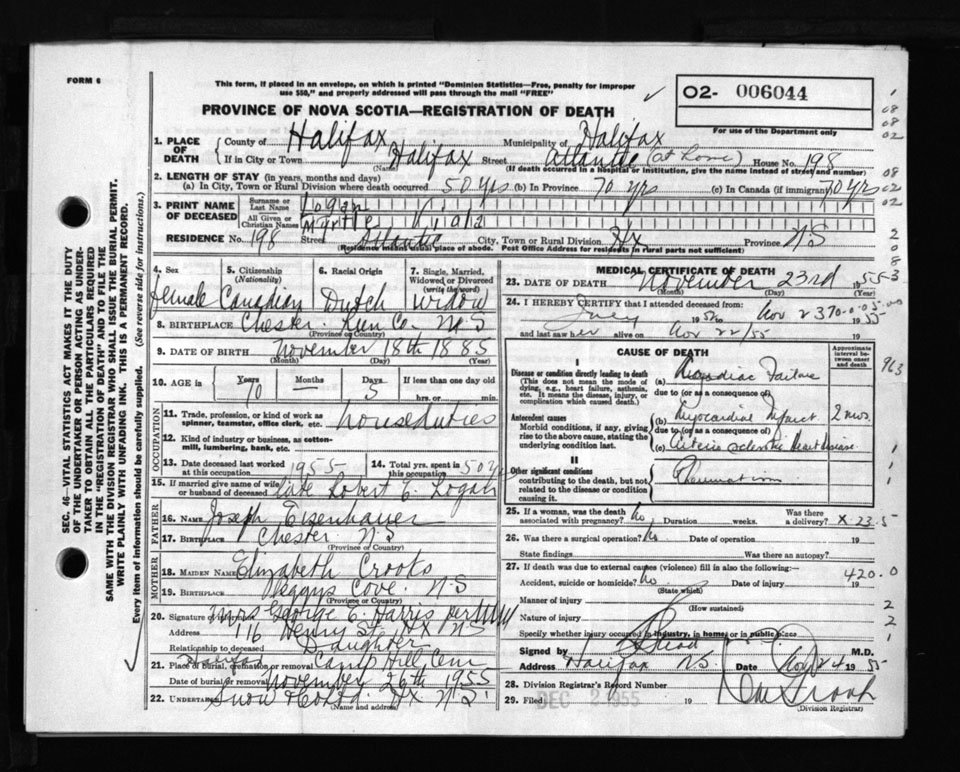 FORM 6
This form, if placed in an envelope, on which is printed "Dominion Statistics—Free, penalty for improper
use $50," and properly addressed will pass through the mail "FREE"
PROVINCE OF NOVA SCOTIA—REGISTRATION OF DEATH
02- 006044
For use of the Department only
1. PLACE OF DEATH County of Halifax Municipality of Halifax
If in City or Town Halifax (Name) Street Atlantic (at home) House No. 198
(If death occurred in a hospital or institution, give the name instead of street and number)
2. LENGTH OF STAY (in years, months and days)
(a) In City, Town or Rural Division where death occurred 50 yrs (b) In Province 70 yrs (c) In Canada (if immigrant) 70 yrs
3. PRINT NAME OF DECEASED Surname or Last Name Logan
All Given or Christian Names Myrtle
RESIDENCE No. 198 Street Atlantic City, Town or Rural Division Hx Province N.S
(Residence means usual place of abode. Post Office Address for residents in rural parts not sufficient)
4. Sex female
5. Citizenship (Nationality) Canadian
6. Racial Origin Dutch
7. Single, Married, Widowed or Divorced (write the word) widow
8. BIRTHPLACE Chester Lun Co. N.S
(Province or Country)
9. DATE OF BIRTH November 18th 1885
(Month) (Day) (Year)
10. AGE in Years 70 Months Days 5 If less than one day old hrs. or min.
OCCUPATION
11. Trade, profession, or kind of work as spinner, teamster, office clerk, etc. house duties
12. Kind of industry or business, as cotton-mill, lumbering, bank, etc.
13. Date deceased last worked at this occupation 1955
14. Total yrs. spent in this occupation 50 yrs
15. If married give name of wife or husband of deceased late Robert E. Logan
FATHER
16. NAME Joseph Eisenhauer
17. BIRTHPLACE Chester N.S
(Province or Country)
MOTHER
18. MAIDEN NAME Elizabeth Crooks
19. BIRTHPLACE Peggys Cove N.S
(Province or Country)
20. Signature of informant Mrs George E. Harris per
Address 116 Henry St Hx NS
Relationship to deceased Daughter
21. Place of burial, cremation or removal Halifax Camp Hill Cem
Date of burial or removal November 26th 1955
22. Undertaker Snow & Co Ltd. Hx N.S.
(Name and address)
MEDICAL CERTIFICATE OF DEATH
23. DATE OF DEATH November 23rd 1955
(Month) (Day) (Year)
24. I HEREBY CERTIFY that I attended deceased from:
July 19 to Nov 23 1955
and last saw her alive on Nov 22/55
CAUSE OF DEATH
Approximate interval between onset and death
I
Disease or condition directly leading to death
(This does not mean the mode of dying, e.g., heart failure, asthenia, etc. It means the disease, injury, or complication which caused death.)
(a) Cardiac Failure
due to (or as a consequence of)
Antecedent causes
Morbid conditions, if any, giving rise to the above cause, stating the underlying condition last.
(b) Myocardial Infarct 2 mos.
due to (or as a consequence of)
(c) Arterio sclerotic Heart Disease
II
Other significant conditions
contributing to the death, but not related to the disease or condition causing it.
Rheumatism
25. If a woman, was the death associated with pregnancy? no Duration weeks. Was there a delivery? X 23.5
26. Was there a surgical operation? No Date of operation 19
State findings Was there an autopsy?
27. If death was due to external causes (violence) fill in also the following:
420.0
Accident, suicide or homicide? no. Date of injury 19
(State which)
Manner of injury
(How sustained)
Nature of injury
Specify whether injury occurred in industry, in home, or in public place
Signed by M.D.
Address Halifax N.S. Date Nov 24 1955
28. Division Registrar's Record Number
29. Filed DEC 2 1955 19
(Division Registrar)
SEC. 46—VITAL STATISTICS ACT MAKES IT THE DUTY
OF THE UNDERTAKER OR PERSON ACTING AS UNDER-
TAKER TO OBTAIN ALL THE PARTICULARS REQUIRED
IN THE "REGISTRATION OF DEATH" AND TO FILE THE
SAME WITH THE DIVISION REGISTRAR WHO SHALL ISSUE THE BURIAL PERMIT.
WRITE PLAINLY WITH UNFADING INK. THIS IS A PERMANENT RECORD.
Every item of information should be carefully supplied. (See reverse side for instructions.)
963